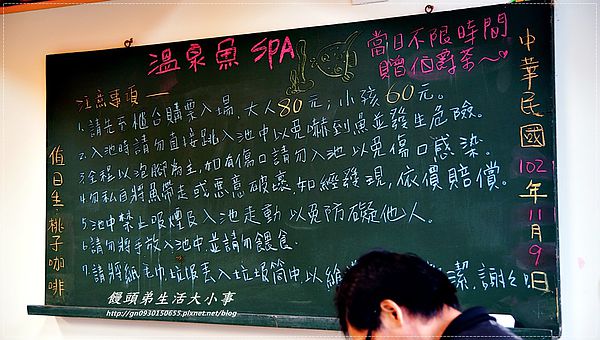 溫泉魚 SPA
當日不限時間
贈伯爵茶~♡
注意事項
1.請先至櫃台購票入場,大人80元;小孩60元。
2.入池時請勿直接跳入池中以免嚇到魚並發生危險。
3.全程以泡腳為主,如有傷口請勿入池以免傷口感染。
4.勿私自將魚帶走或惡意破壞,如經發現,依價賠償。
5.池中禁止吸煙及入池走動以免防礙他人。
6.請勿將手放入池中並請勿餵食.
7.請將紙毛巾垃圾丟入垃圾筒中,以維 潔,謝
中華民國102年11月9日
值日生 桃子咖啡
饅頭弟生活大小事
http://gn0930150655.pixnet.net/blog